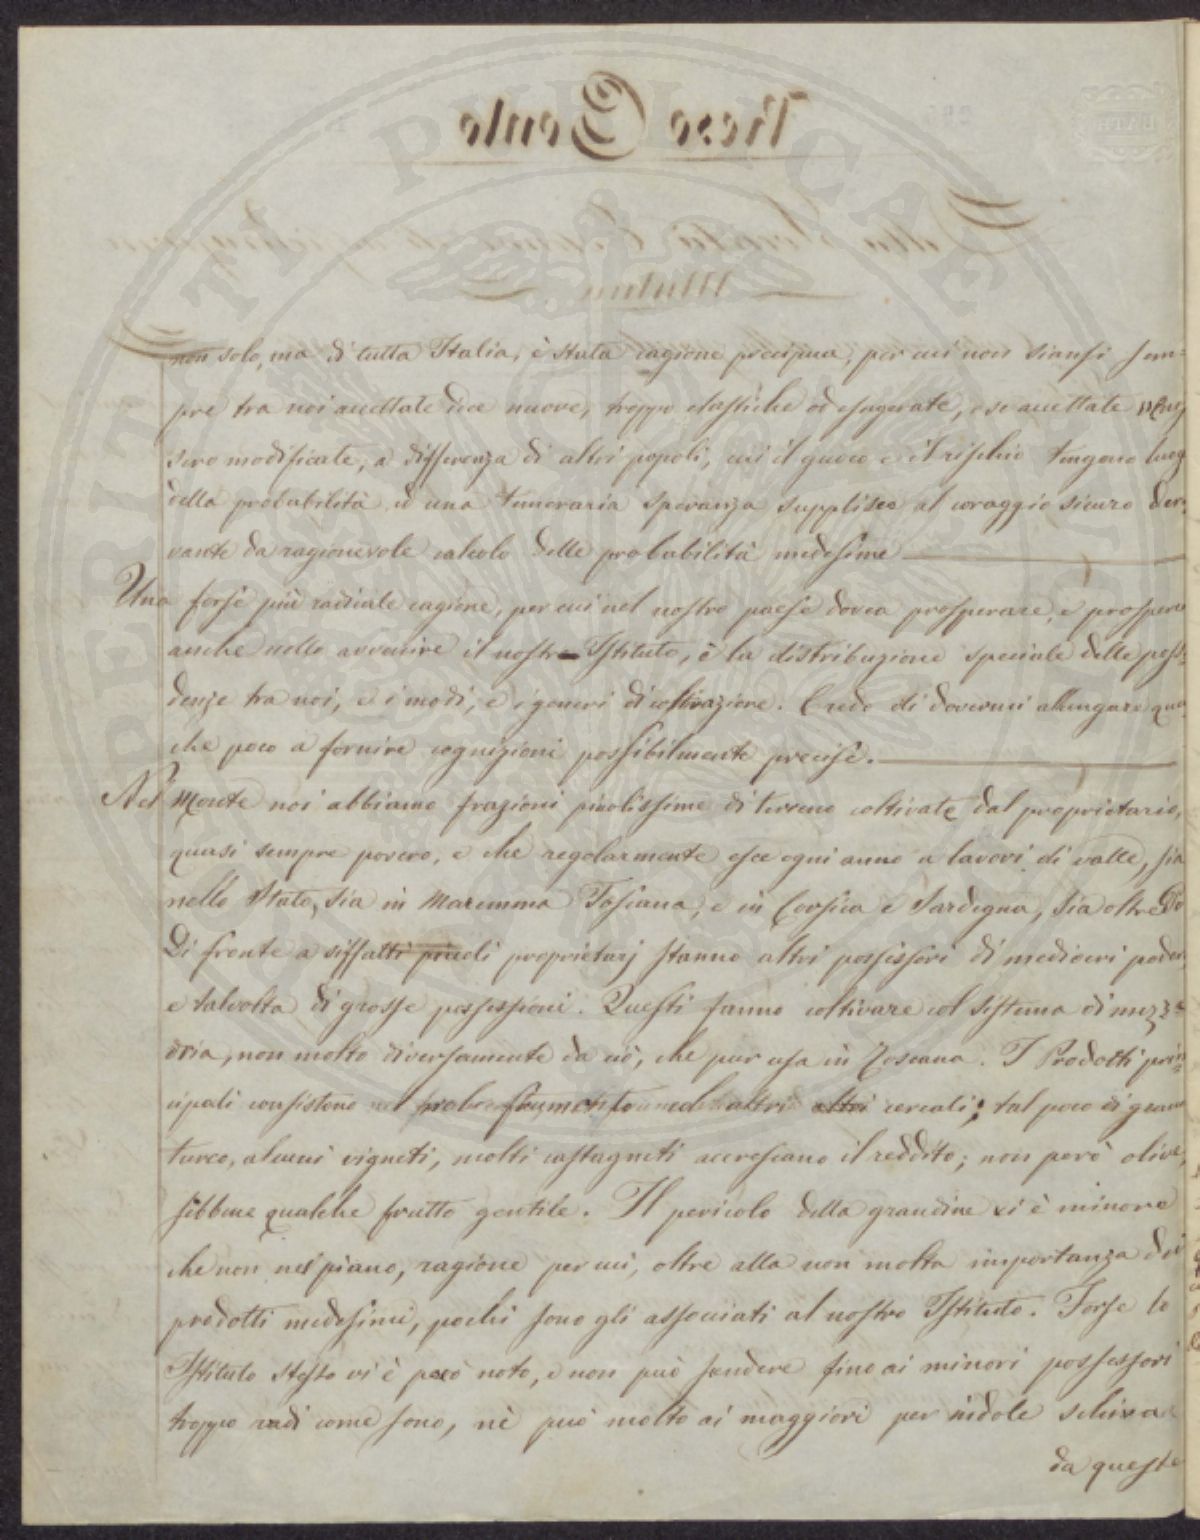 non solo, ma di tutta Italia, è stata cagione precipua, per cui non siansi sem=
pre tra noi accettate idee nuove, troppo elastiche od esagerate, e se accettate
sero modificate, a differenza di altri popoli, cui il giuoco e il rischio tengono luog
della probabilità ed una temeraria speranza supplisce al coraggio sicuro deri=
vante da ragionevole calcolo delle probabilità medesime
Una forse più radicale cagione, per cui nel nostro paese dovea prosperare, e prosper
anche nello avvenire il nostro Istituto, è la distribuzione speciale delle poss=
denze tra noi, e i modi, e i generi di coltivazione. Credo di dovermi allungare qua
che poco a fornire cognizioni possibilmente precise.
Nel Monte noi abbiamo frazioni piccolissime di terreno coltivate dal proprietario,
quasi sempre povero, e che regolarmente esce ogni anno a lavori di valle, sia
nello Stato, sia in Maremma Tosiana, e in Corsica e Sardegna, sia oltre Pò
Di fronte a siffatti piccoli proprietarj stanno altri possessori di mediocri poder
e talvolta di grosse possessioni. Questi fanno coltivare col sistema di mezza=
dria, non molto diversamente da ciò, che pur usa in Toscana. I Prodotti prin=
cipali consistono nel frumento ed altri cereali; tal poco di grano
turco, alcuni vigneti, molti castagneti accrescano il reddito; non però olive,
sibbene qualche frutto gentile. Il pericolo della grandine vi è minore
che non nel piano, ragione per cui, oltre alla non molta importanza dei
prodotti medesimi, pochi sono gli associati al nostro Istituto. Forse lo
Istituto stesso vi è poco noto, e non può scendere fino ai minori possessori
troppo radi come sono, nè può molto ai maggiori per indole schiva
da queste